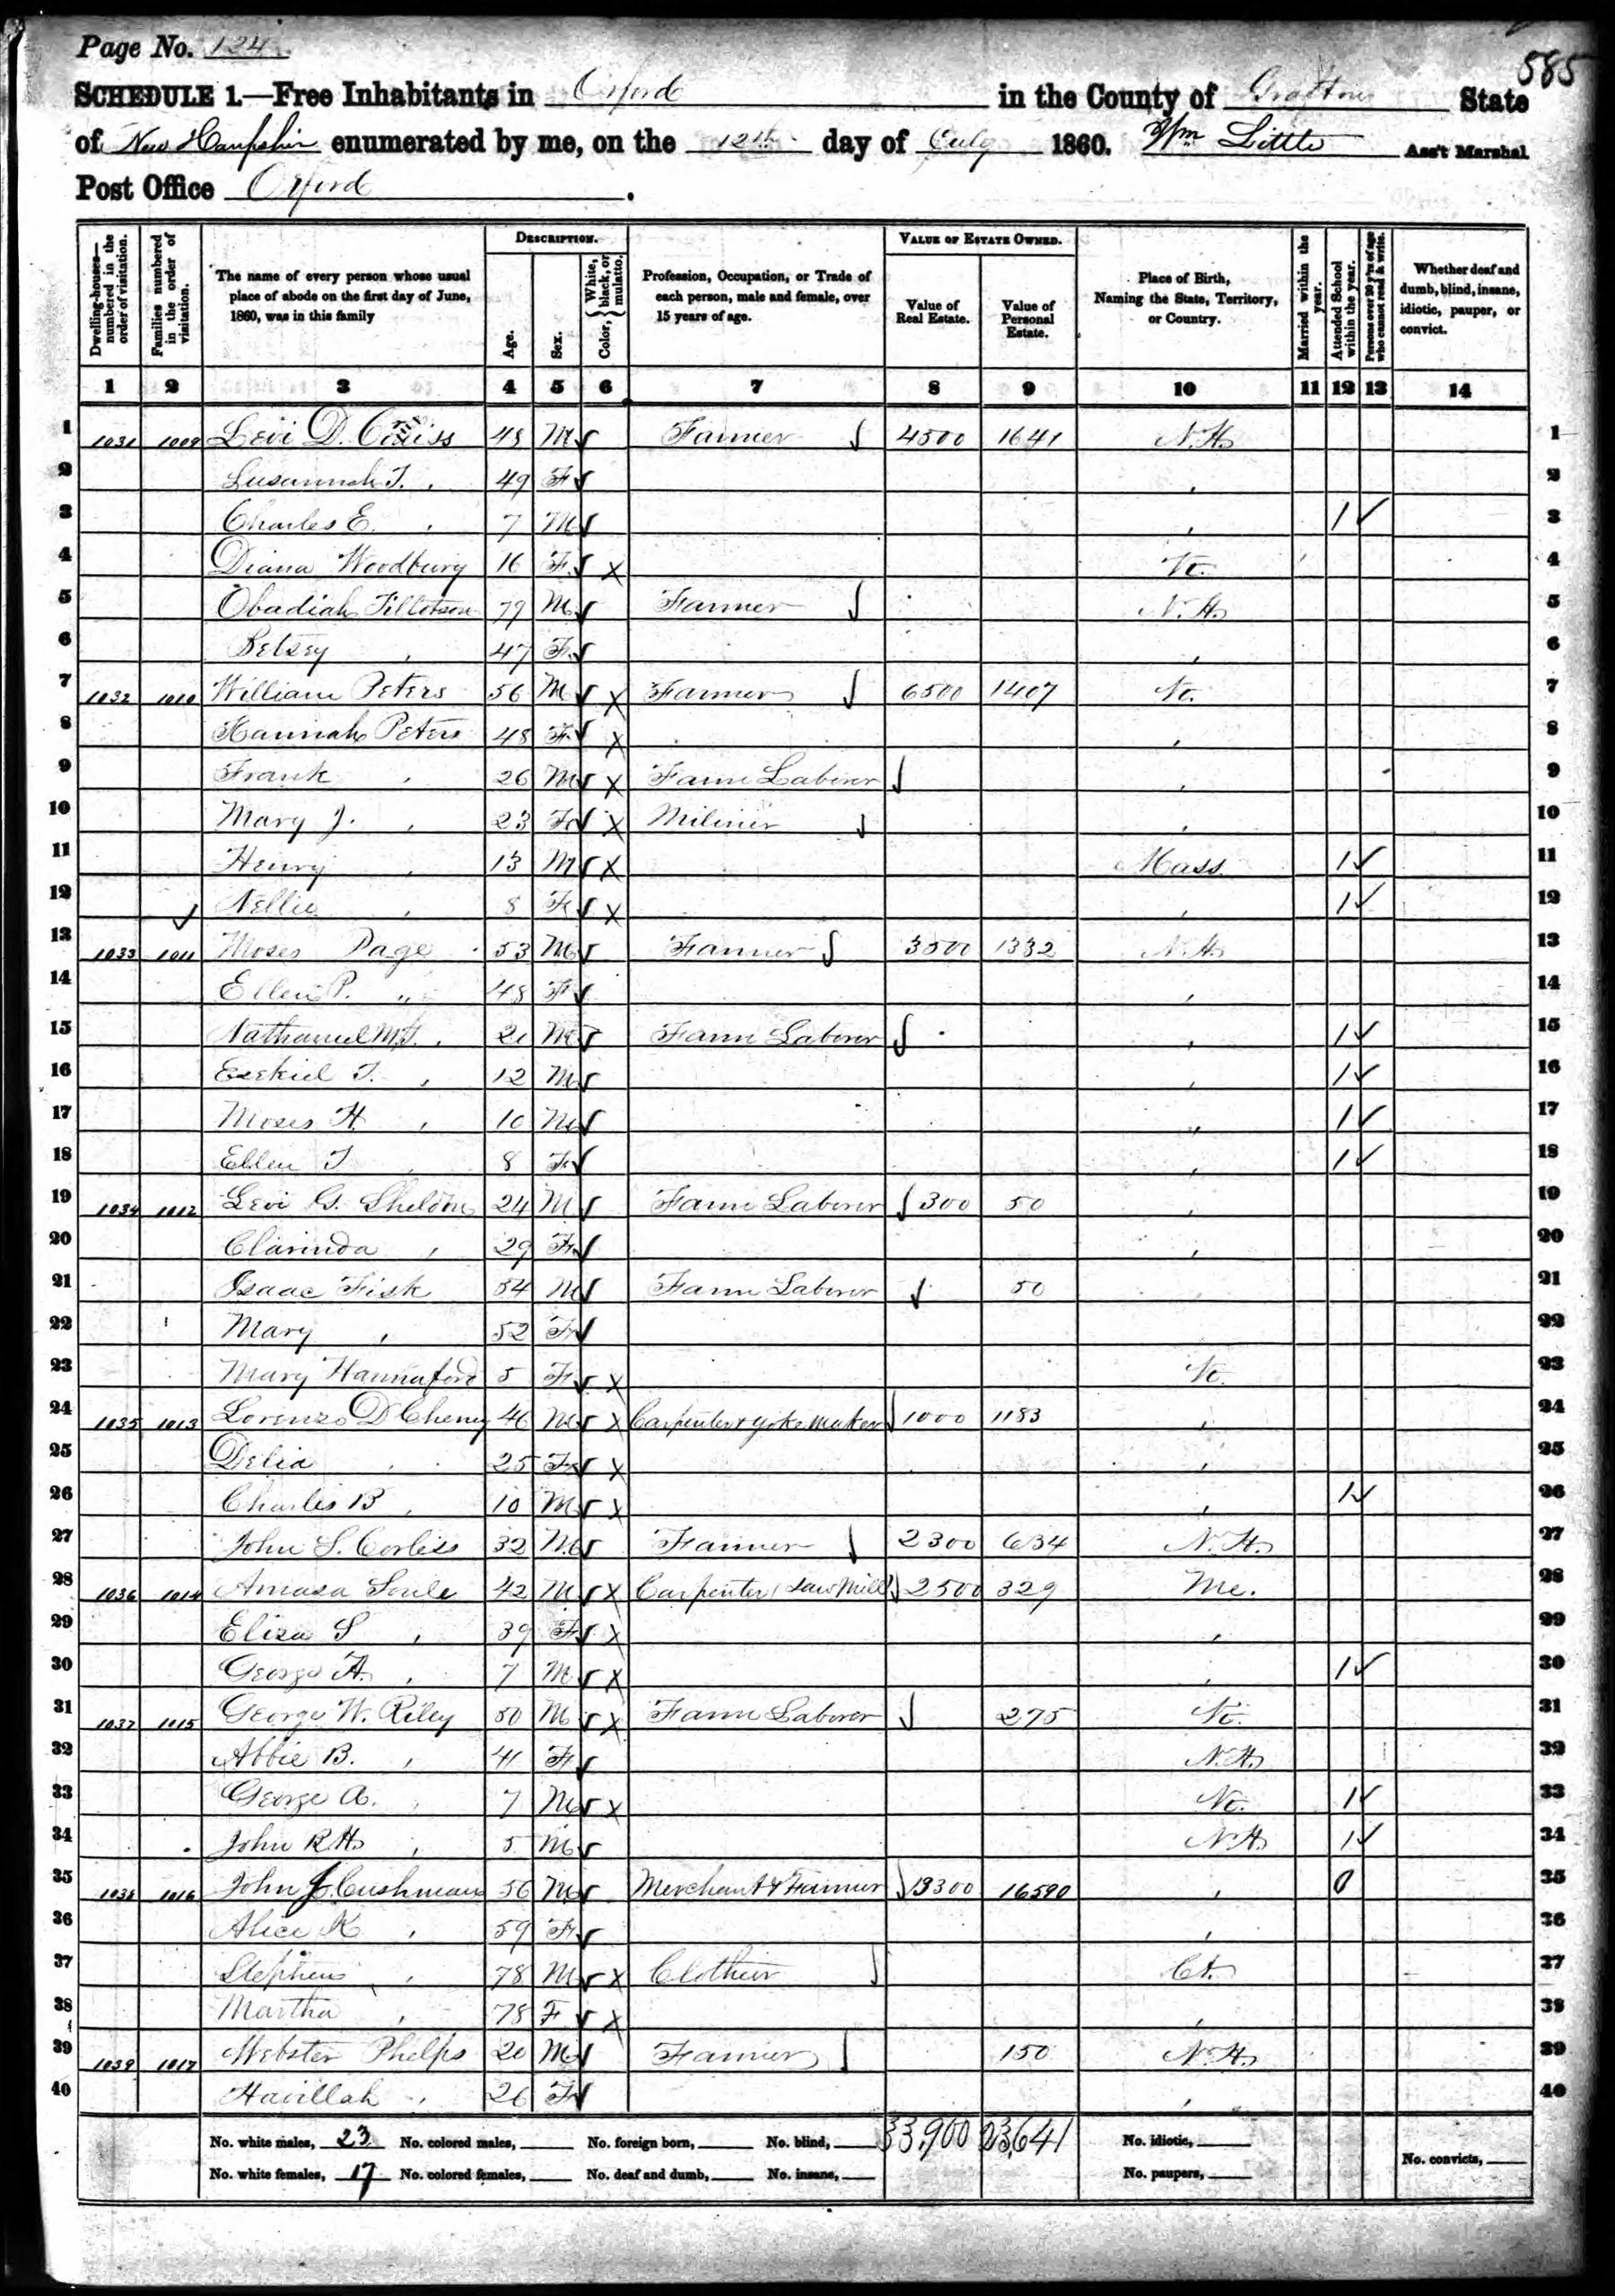 Page No. 124
585
SCHEDULE 1.—Free Inhabitants in Orford in the County of Grafton State
of New Hampshire enumerated by me, on the 12th day of July 1860. Wm Little Ass't Marshal
Post Office Orford.
Dwelling-houses—numbered in the order of visitation. Families numbered in the order of visitation. The name of every person whose usual place of abode on the first day of June, 1860, was in this family DESCRIPTION. Age. Sex. Color, White, black, or mulatto. Profession, Occupation, or Trade of each person, male and female, over 15 years of age. VALUE OF ESTATE OWNED. Value of Real Estate. Value of Personal Estate. Place of Birth, Naming the State, Territory, or Country. Married within the year. Attended School within the year. Persons over 20 y'rs of age who cannot read & write. Whether deaf and dumb, blind, insane, idiotic, pauper, or convict.
1 2 3 4 5 6 7 8 9 10 11 12 13 14
1 1031 1009 Levi D. 48 M Farmer 4500 1641 N.H. 1
2 Susannah T. " 49 F " 2
3 Charles E. " 7 M " 1 3
4 Diana Woodbury 16 F X Vt. 4
5 Obadiah Tillotson 79 M Farmer N.H. 5
6 Betsey " 47 F " 6
7 1032 1010 William Peters 56 M X Farmer 6500 1407 Vt. 7
8 Hannah Peters 48 F X " 8
9 Frank " 26 M X Farm Laborer " 9
10 Mary J. " 23 F X Miliner " 10
11 Henry " 13 M X Mass 1 11
12 Nellie " 8 F X " 1 12
13 1033 1011 Moses Page 53 M Farmer 3500 1332 N.H. 13
14 Ellen P. " 48 F " 14
15 Nathaniel M.T. " 21 M Farm Laborer " 1 15
16 Ezekiel T. " 12 M " 1 16
17 Moses H " 10 M " 1 17
18 Ellen T " 8 F " 1 18
19 1034 1012 Levi G. Sheldon 24 M Farm Laborer 300 50 " 19
20 Clarinda " 29 F " 20
21 Isaac Fisk 54 M Farm Laborer 50 21
22 Mary " 52 F 22
23 Mary Hannaford 5 F X Vt. 23
24 1035 1013 Lorenzo D Cheney 46 M X Carpenter & yoke maker 1000 1183 " 24
25 Delia " 25 F X " 25
26 Charles B " 10 M X " 1 26
27 John S. Corliss 32 M Farmer 2300 634 N.H. 27
28 1036 1014 Amasa Soule 42 M X Carpenter, Saw Mill 2500 329 Me. 28
29 Eliza S " 39 F X " 29
30 George A. " 7 M X " 1 30
31 1037 1015 George W. Riley 50 M X Farm Laborer 275 Vt. 31
32 Abbie B. " 41 F N.H. 32
33 George A. " 7 M X Vt. 1 33
34 John R.H. " 5 M N.H. 1 34
35 1038 1016 John J. Cushman 56 M Merchant & Farmer 13300 16590 " 0 35
36 Alice K " 59 F " 36
37 Stephen " 78 M X Clothier Ct. 37
38 Martha " 78 F X " 38
39 1039 1017 Webster Phelps 20 M Farmer 150 N.H. 39
40 Havillah " 26 F " 40
No. white males, 23 No. colored males, No. foreign born, No. blind, 33,900 23,641 No. idiotic,
No. white females, 17 No. colored females, No. deaf and dumb, No. insane, No. paupers, No. convicts,